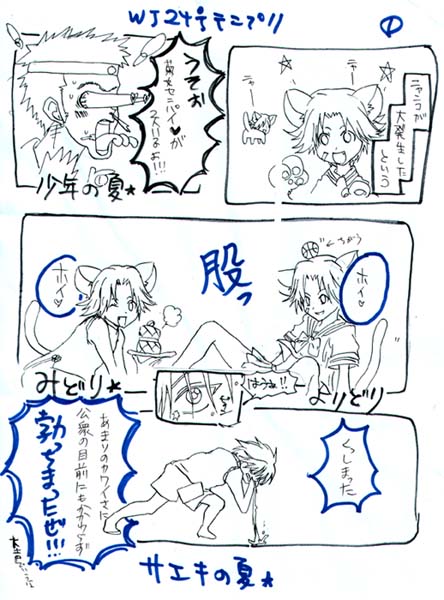 WJ24号テニプリ
①
ニャンコが
大発生した
という
ニャー
ニャー
うそお
菊センパイ♥が
少年の夏★
ホイ♡
股っ
←ちがう
ホイ♡
みどり★
よりどり
はうぁ!!
くっしまった
あまりのカワイさに
公衆の目前にもかかわらず
勃っちまったぜ!!!
サエキの夏★